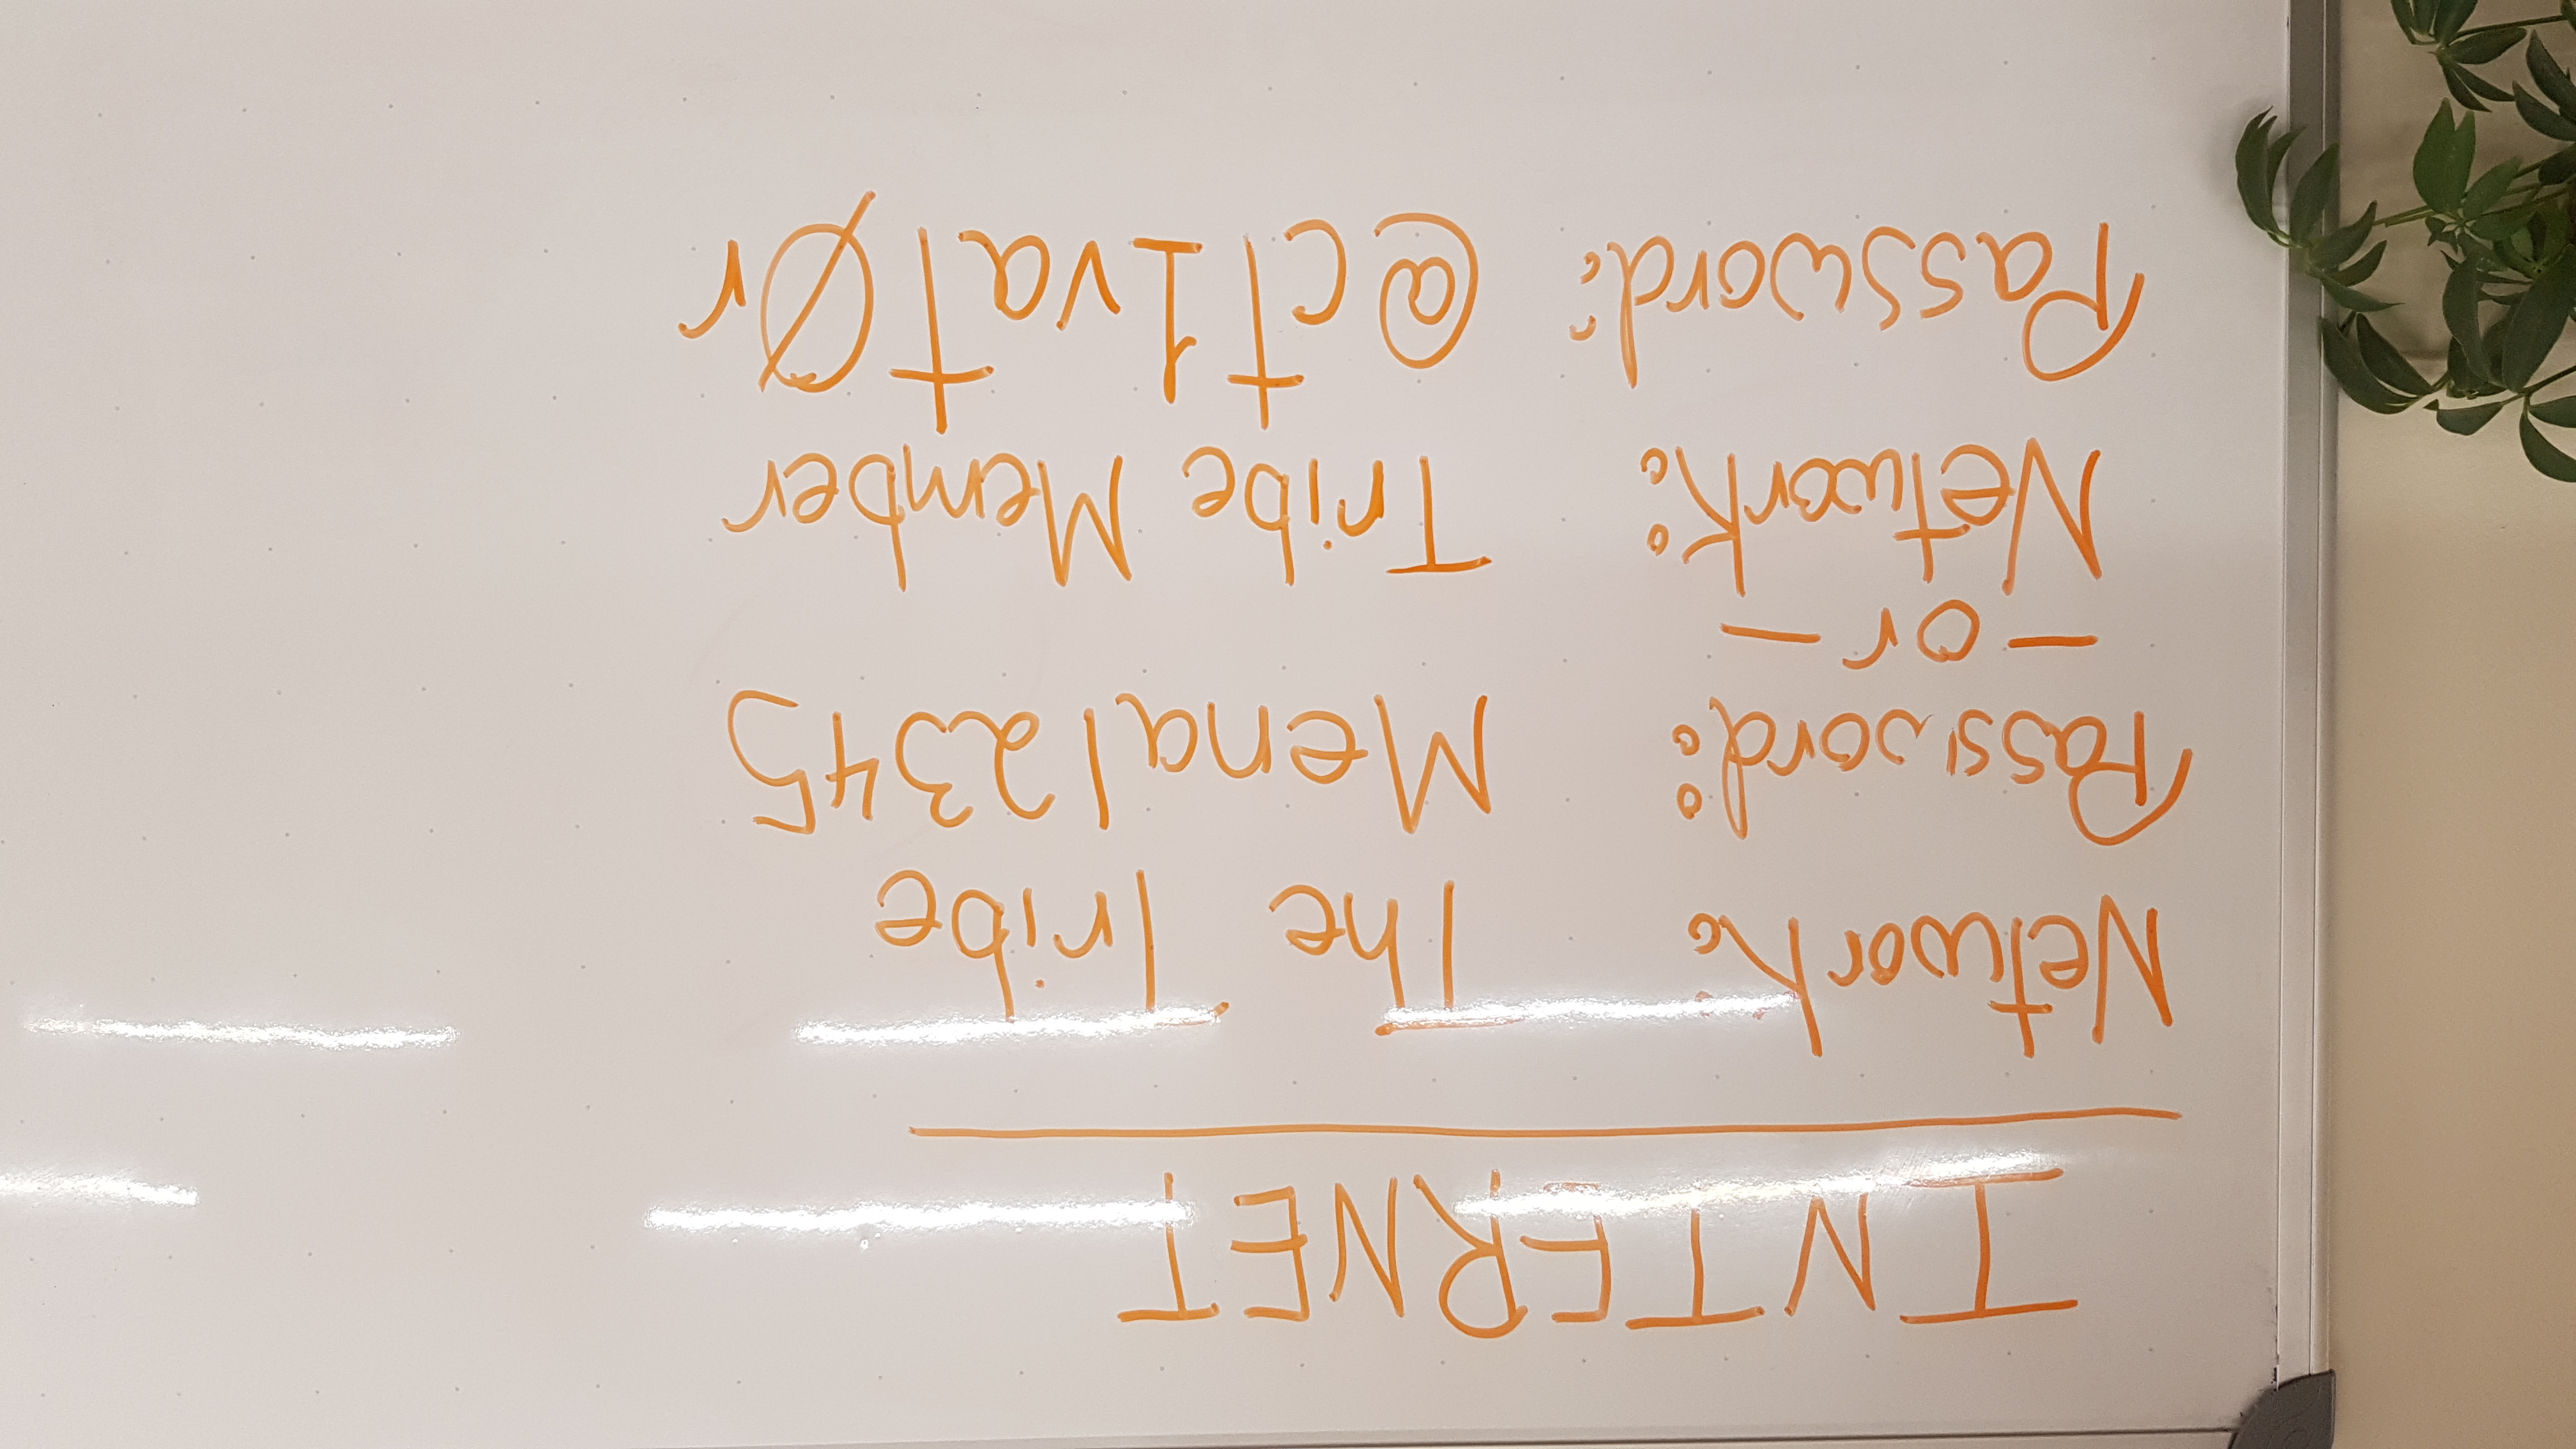 INTERNET
Network: The Tribe
Password: Mena12345
- or -
Network: Tribe Member
Password: @ct1vatØr